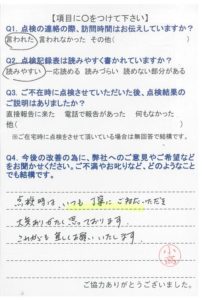 【項目に○をつけて下さい】
Q1. 点検の連絡の際、訪問時間はお伝えしていますか？
言われた　言われなかった　その他(　　　　　)
Q2. 点検記録表は読みやすく書かれていますか？
読みやすい　一応読める　読みづらい　読めない部分がある
Q3. ご不在時に点検させていただいた後、点検結果の
ご説明はありましたか？
直接報告に来た　電話で報告があった　何もなかった
他(　　　　　)
※ご在宅時に点検をさせて頂いている場合は無回答で結構です。
Q4. 今後の改善の為に、弊社へのご意見やご希望など
をお聞かせください。ご不満やお叱りなど、どのようなこと
でも結構です。
点検時は、いつも丁寧にご対応いただき
大変ありがたく思っております。
これからも宜しくお願いいたします。
ご協力ありがとうございました。